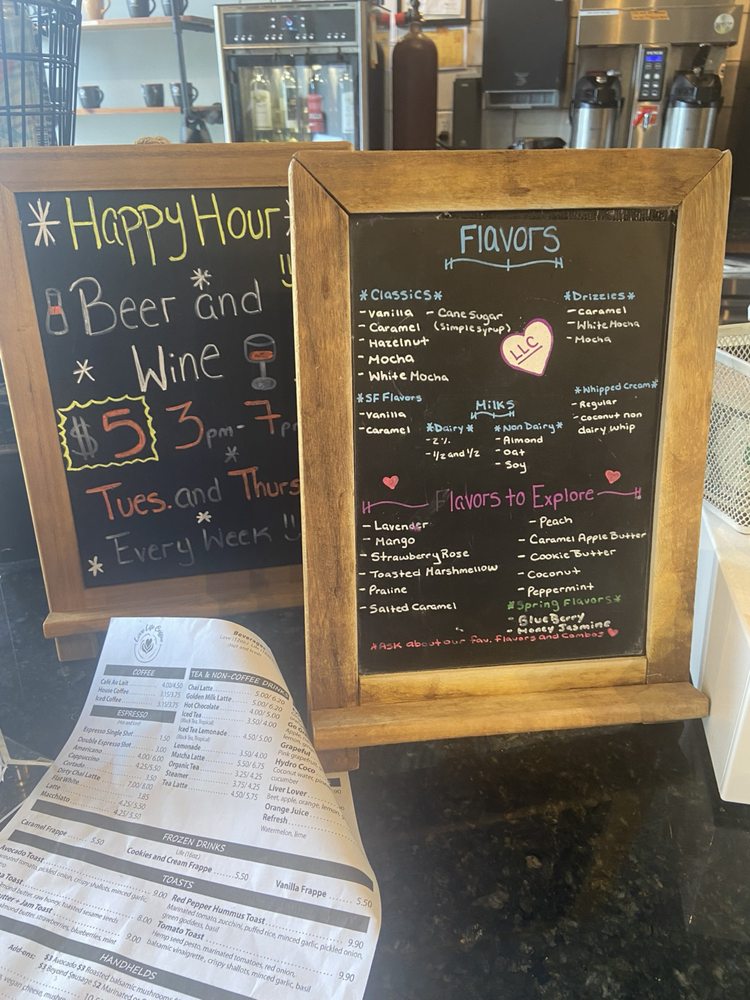 Happy Hour
!!
Beer and
Wine
$5 3pm-7
Tues. and Thurs
Every Week !!
Flavors
*Classics*
- Vanilla
- Caramel
- Hazelnut
- Mocha
- White Mocha
- Cane Sugar
(Simple syrup)
LLC
*Drizzles*
- Caramel
- White Mocha
- Mocha
*SF Flavors
- Vanilla
- Caramel
Milks
*Dairy*
- 2%
- 1/2 and 1/2
*Non Dairy*
- Almond
- Oat
- Soy
*Whipped Cream*
- Regular
- Coconut non
dairy whip
Flavors to Explore
- Lavender
- Mango
- Strawberry Rose
- Toasted Marshmellow
- Praline
- Salted Caramel
- Peach
- Caramel Apple Butter
- Cookie Butter
- Coconut
- Peppermint
*Spring Flavors*
- BlueBerry
- Honey Jasmine
*Ask about our fav. flavors and combos
COFFEE
Café Au Lait 4.00/4.50
House Coffee 3.15/3.75
Iced Coffee 3.15/3.75
ESPRESSO
Espresso Single Shot 1.50
Double Espresso Shot 3.00
Americano 4.00/6.00
Cappuccino 4.25/5.50
Cortado 3.50
Dirty Chai Latte 7.00/8.00
Flat White
Latte 4.25/5.50
Macchiato 4.25/5.50
TEA & NON-COFFEE DRINKS
Chai Latte 5.00/6.20
Golden Milk Latte 5.00/6.20
Hot Chocolate 4.00/5.00
Iced Tea 3.50/4.00
(Black Tea, Tropical)
Iced Tea Lemonade 4.50/5.00
(Black Tea, Tropical)
Lemonade 3.50/4.00
Matcha Latte 5.50/6.75
Organic Tea 3.25/4.25
Steamer 3.75/4.25
Tea Latte 4.50/5.75
Beverages
Grapeful
Hydro Coco
Coconut water,
cucumber
Liver Lover
Beet, apple, orange, lemon,
Orange Juice
Refresh
Watermelon, lime
FROZEN DRINKS
Caramel Frappe 5.50
Cookies and Cream Frappe 5.50
Vanilla Frappe 5.50
TOASTS
Avocado Toast 9.00
tomatoes, pickled onion, crispy shallots, minced garlic
Toast 8.00
almond butter, raw honey, toasted sesame seeds
Jam Toast 9.00
almond butter, strawberries, blueberries, mint
Red Pepper Hummus Toast 9.90
Marinated tomato, zucchini, puffed rice, minced garlic, pickled onion,
green goddess, basil
Tomato Toast 9.90
Hemp seed pesto, marinated tomatoes, red onion,
balsamic vinaigrette, crispy shallots, minced garlic, basil
HANDHELDS
Add-ons: $3 Avocado $3 Roasted balsamic mushrooms
$3 Beyond Sausage $2 Marinated